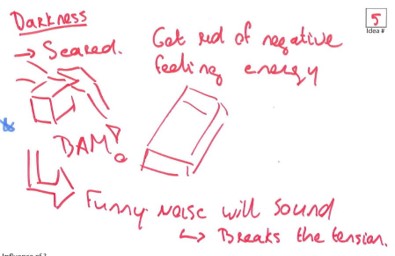 Darkness
→ Scared.
Get rid of negative
feeling energy
5
Idea #
BAM!
Funny noise will sound
↳ Breaks the tension.
Influence of